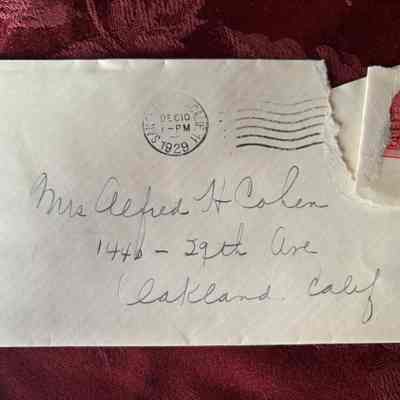 DEC 10
1-PM
1929
Mrs Alfred H Cohen
1446 - 29th Ave
Oakland. Calif